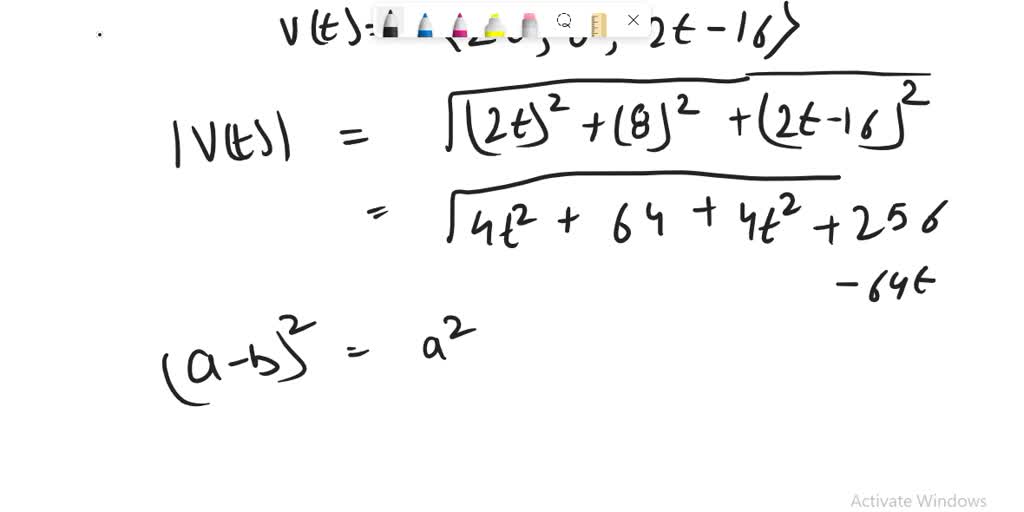 V(t)= 2t-16⟩
|V(t)| = √(2t)² + (8)² + (2t-16)²
= √4t² + 64 + 4t² + 256
- 64t
(a-b)² = a²
Activate Windows